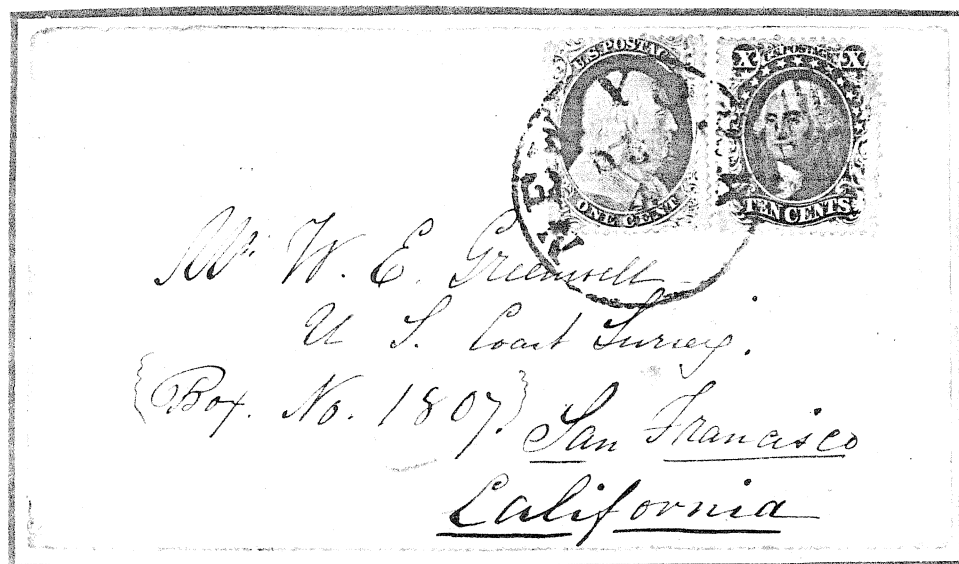 U.S. POSTAGE
ONE CENT
X U.S. POSTAGE X
TEN CENTS.
NEW Y
Mr. W. E. Greenwell
U S. Coast Survey.
{Box. No. 1807.}
San Francisco
California